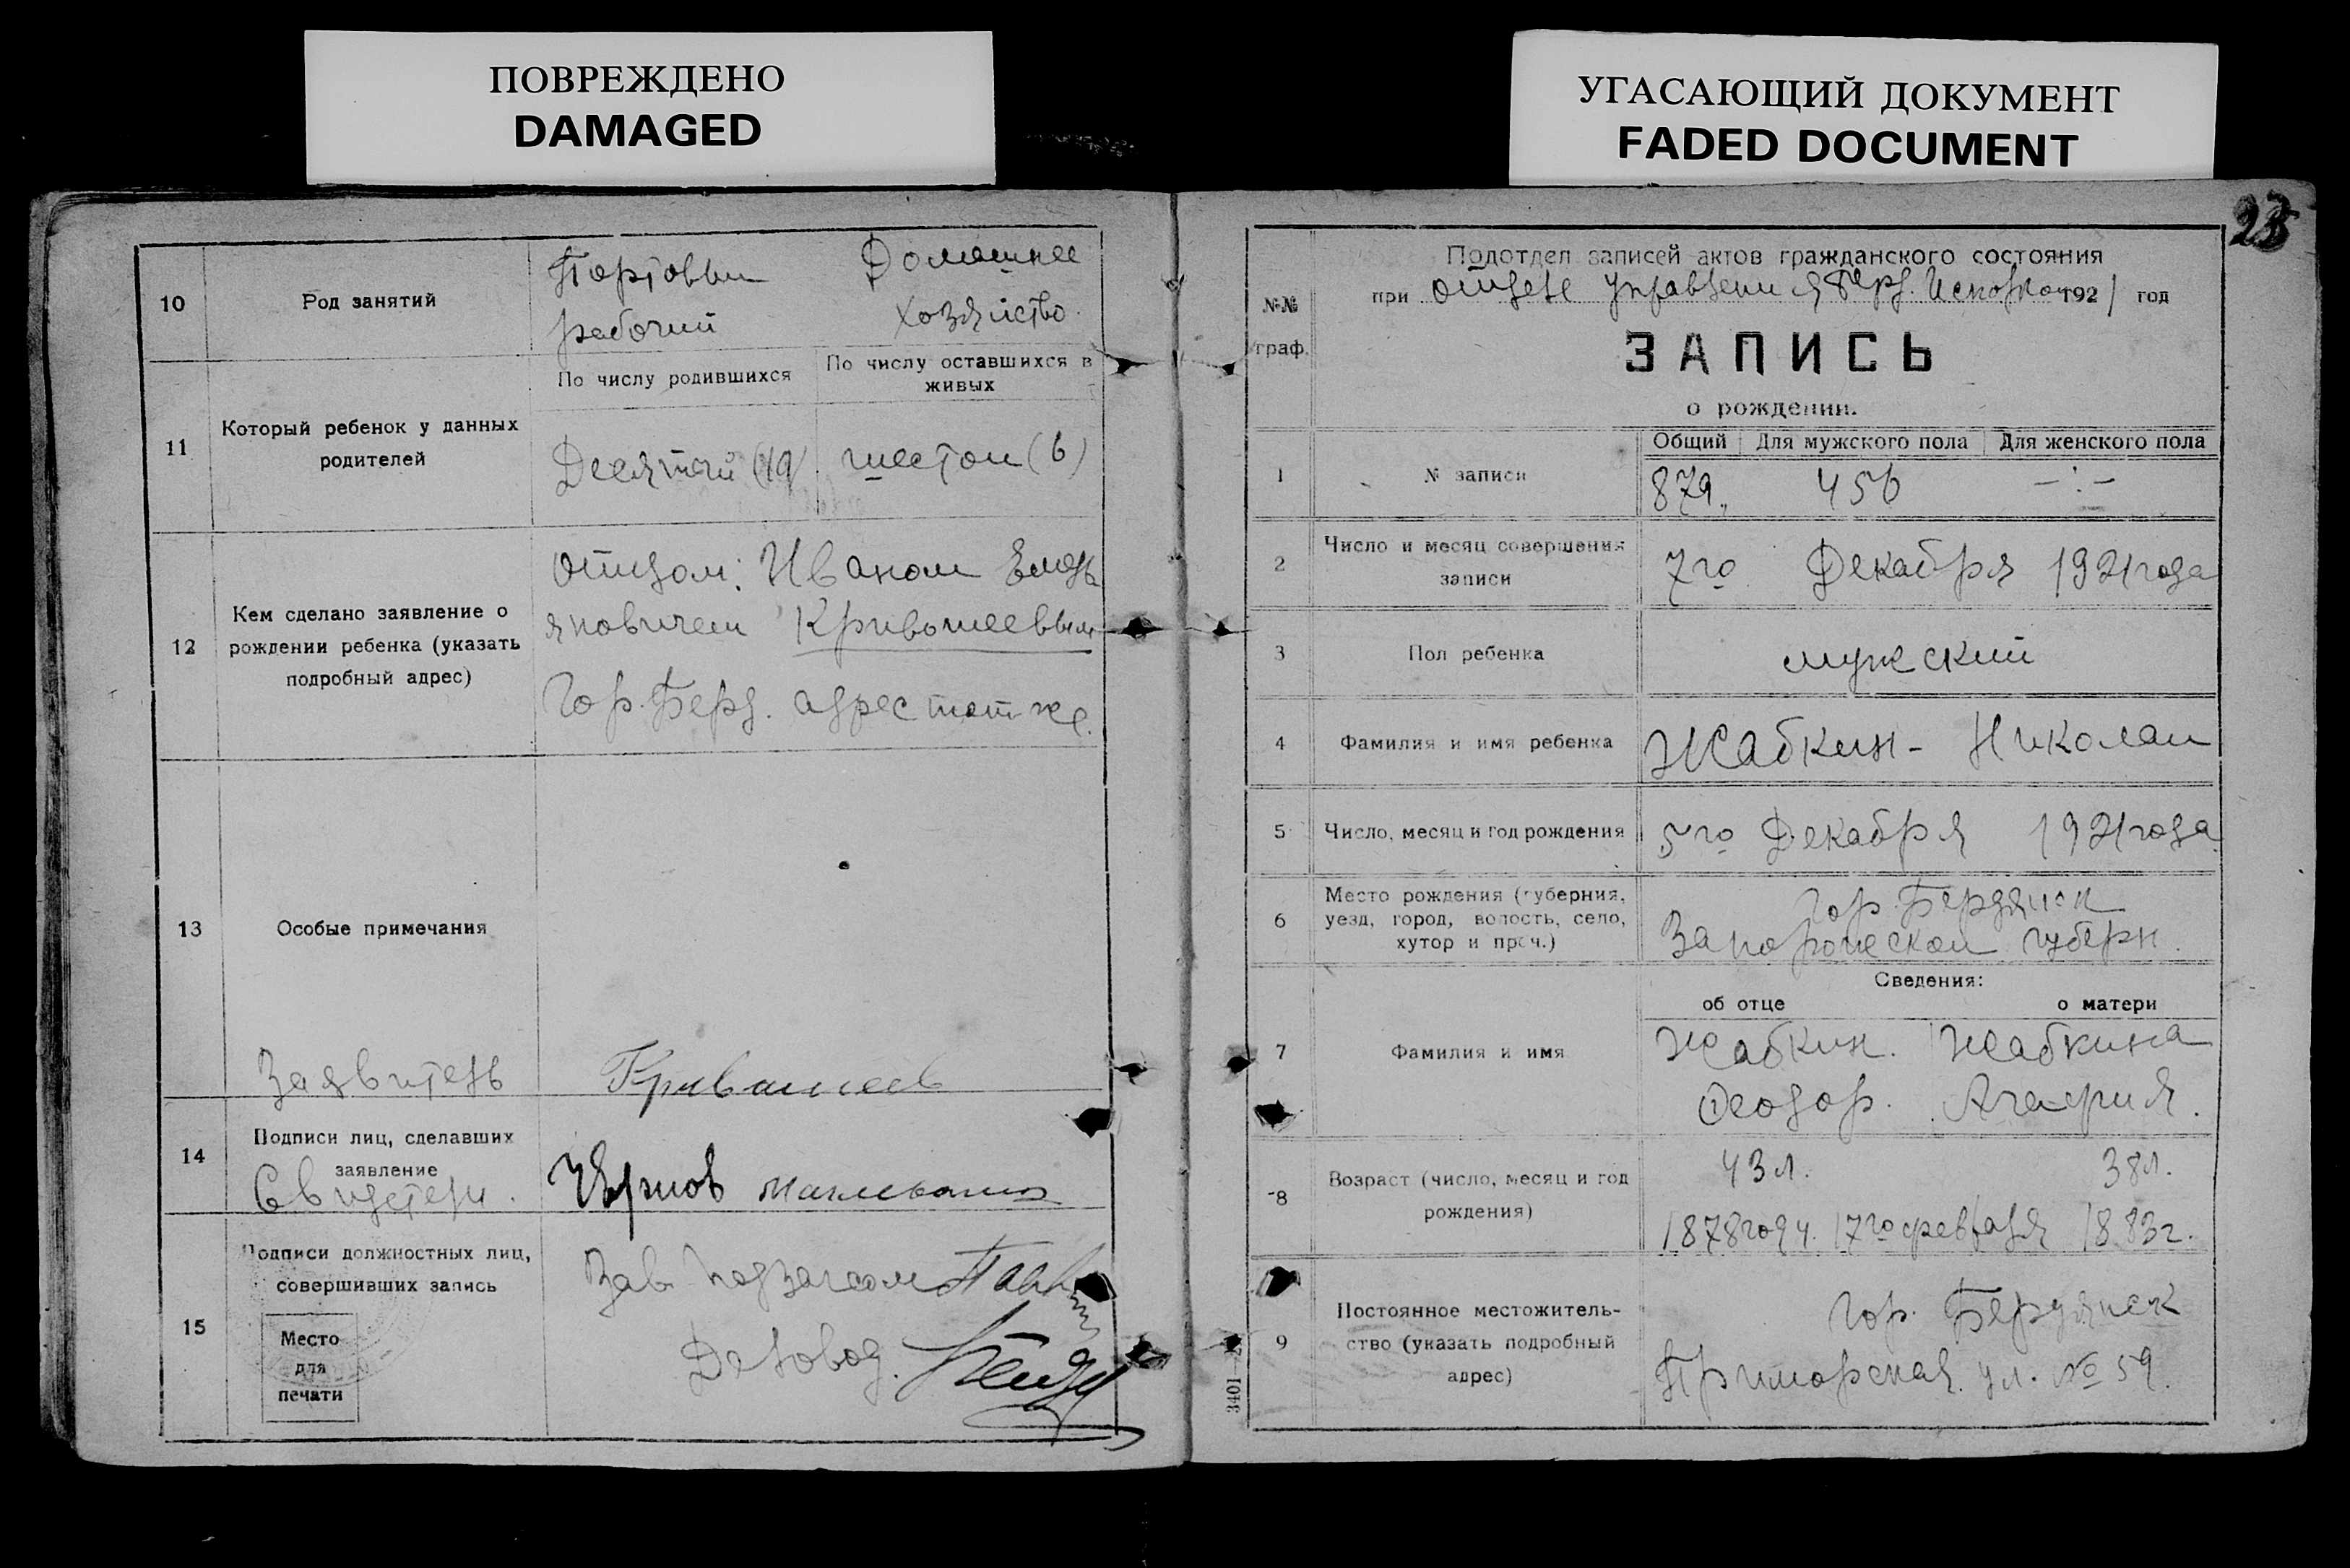 ПОВРЕЖДЕНО
DAMAGED
УГАСАЮЩИЙ ДОКУМЕНТ
FADED DOCUMENT
10
Род занятий
Портовый
рабочий
Домашнее
хозяйство.
11
Который ребенок у данных
родителей
По числу родившихся
По числу оставшихся в
живых
Десятый (10)
шестой (6)
12
Кем сделано заявление о
рождении ребенка (указать
подробный адрес)
отцом: Иваном Емель
яновичем Кривошеевым
Гор. Берд. адрес тот же.
13
Особые примечания
Заявитель
Кривошеев
14
Подписи лиц, сделавших
заявление
Свидетели.
Чернов
15
Подписи должностных лиц,
совершивших запись
Место
для
печати
Зав. подзагсом
Деловод.
23
№№
граф.
Подотдел записей актов гражданского состояния
при отделе Управления Берд. Исполкома 1921 год
ЗАПИСЬ
о рождении.
1
№ записи
Общий Для мужского пола Для женского пола
879. 456 —:—
2
Число и месяц совершения
записи
7го Декабря 1921 года
3
Пол ребенка
мужский
4
Фамилия и имя ребенка
Жабкин - Николай
5
Число, месяц и год рождения
5го Декабря 1921 года
6
Место рождения (губерния,
уезд, город, волость, село,
хутор и проч.)
Гор. Бердянск
Запорожской губерн.
Сведения:
об отце о матери
7
Фамилия и имя
Жабкин. Жабкина
Феодор. Агафия.
8
Возраст (число, месяц и год
рождения)
43 л. 38 л.
1878 год 4. 17го февраля 1883 г.
9
Постоянное местожитель-
ство (указать подробный
адрес)
Гор. Бердянск
Приморская ул. № 59.
3401